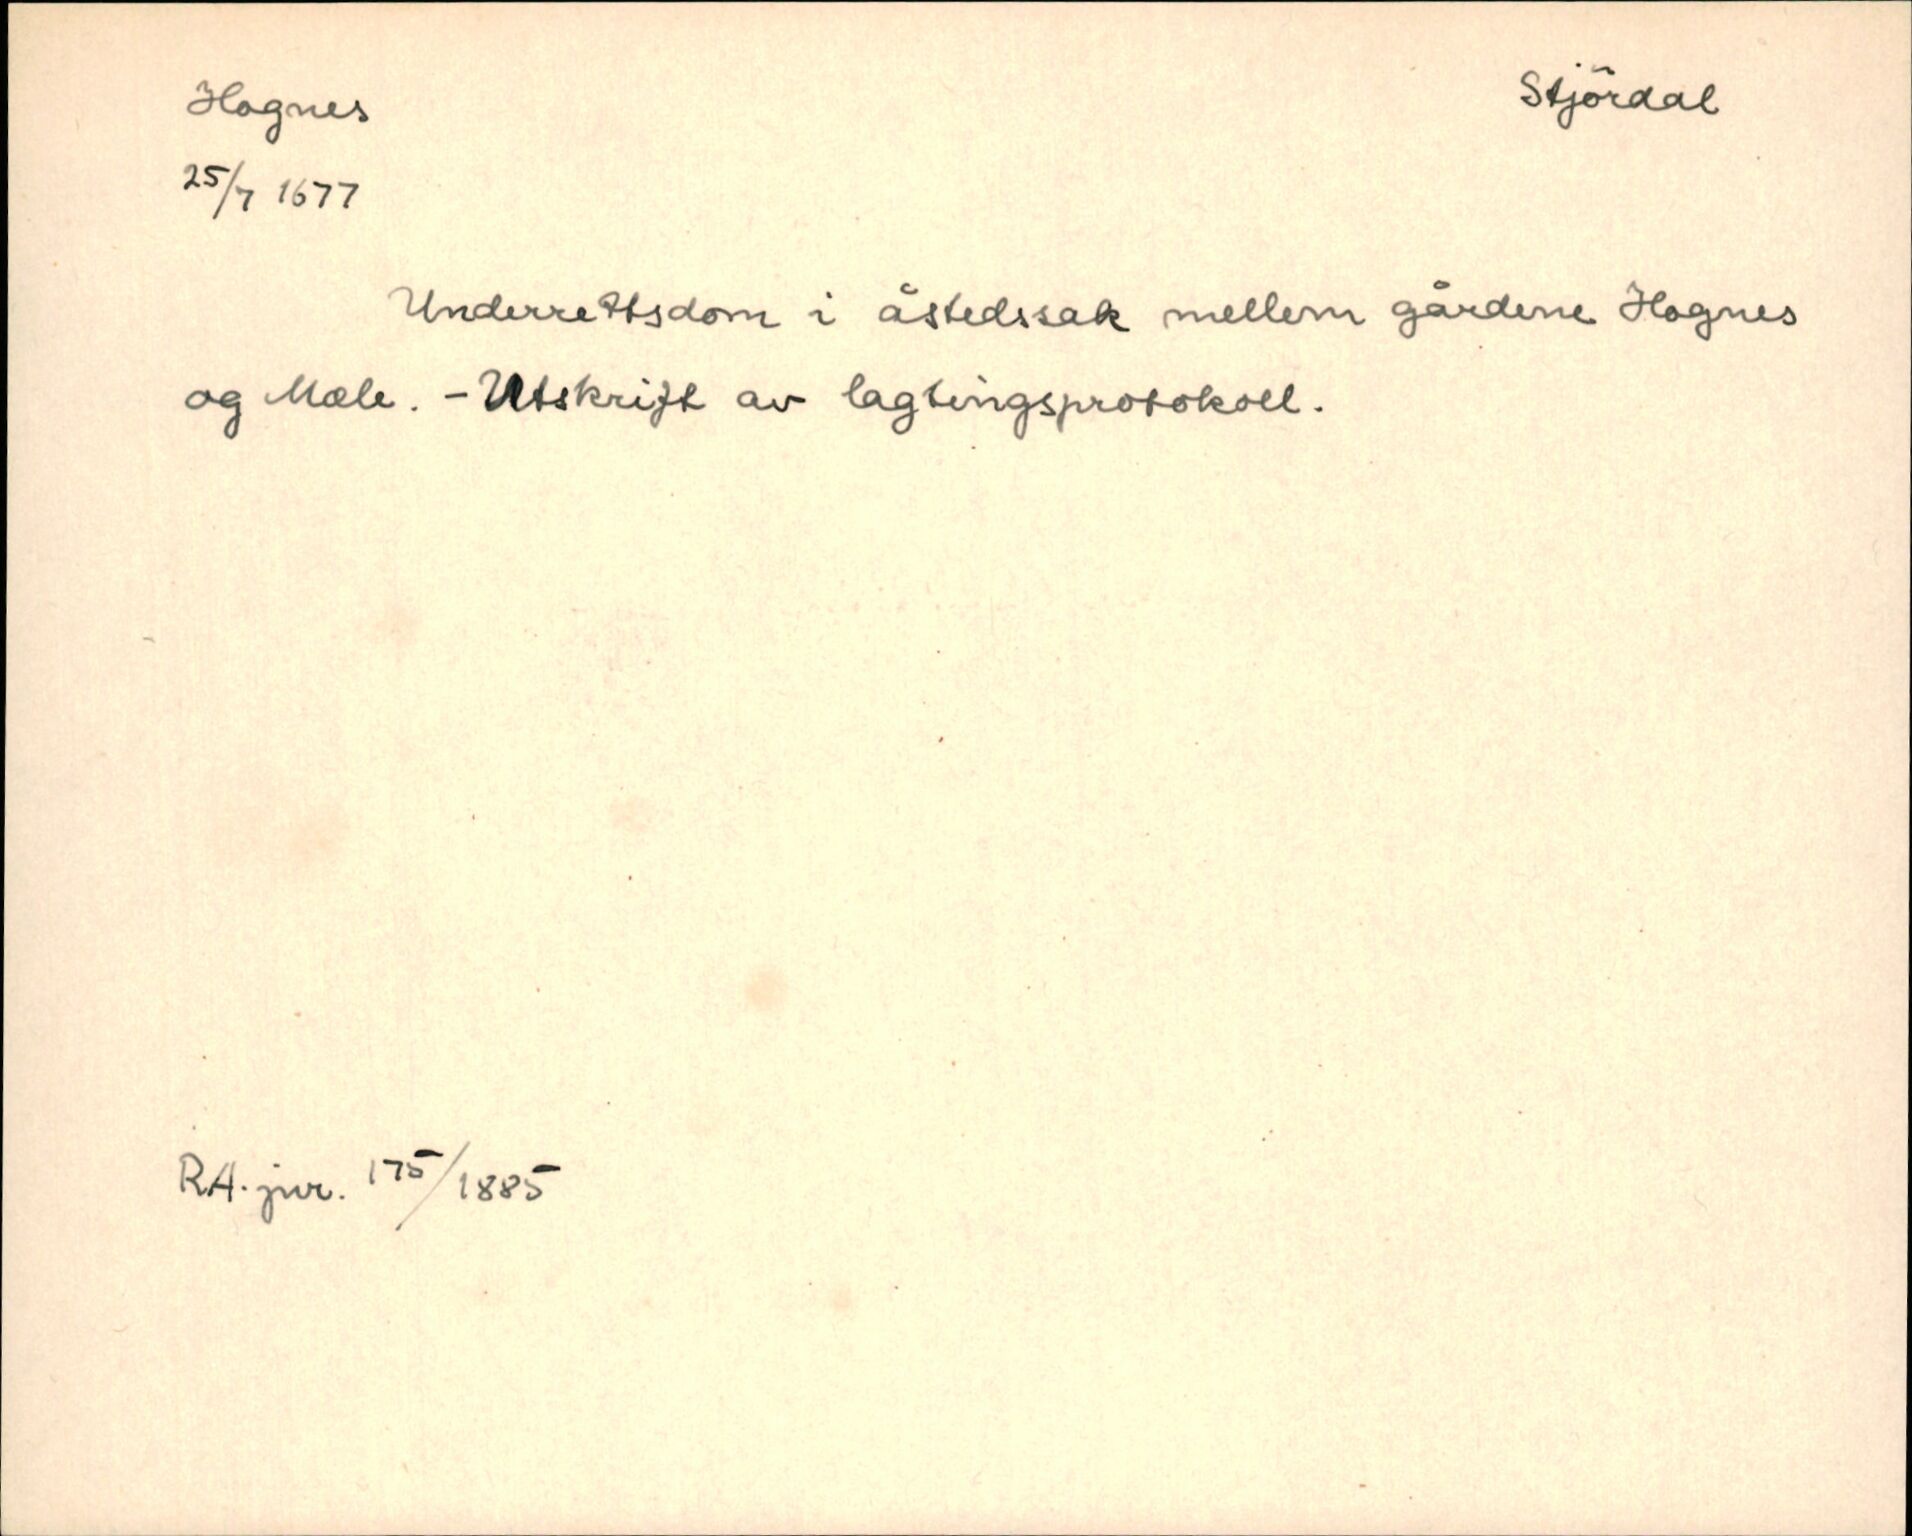 Hognes
Stjördal
25/7 1677
Underrettsdom i åstedssak mellem gårdene Hognes
og Mæle. - Utskrift av lagtingsprotokoll.
R.A. jur. 175/1885